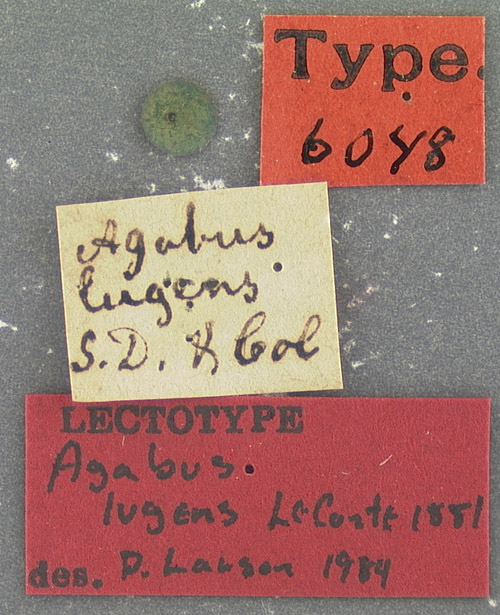 Type.
6048
Agabus
lugens
S.D. & Col
LECTOTYPE
Agabus
lugens LeConte 1881
des. D. Larson 1984